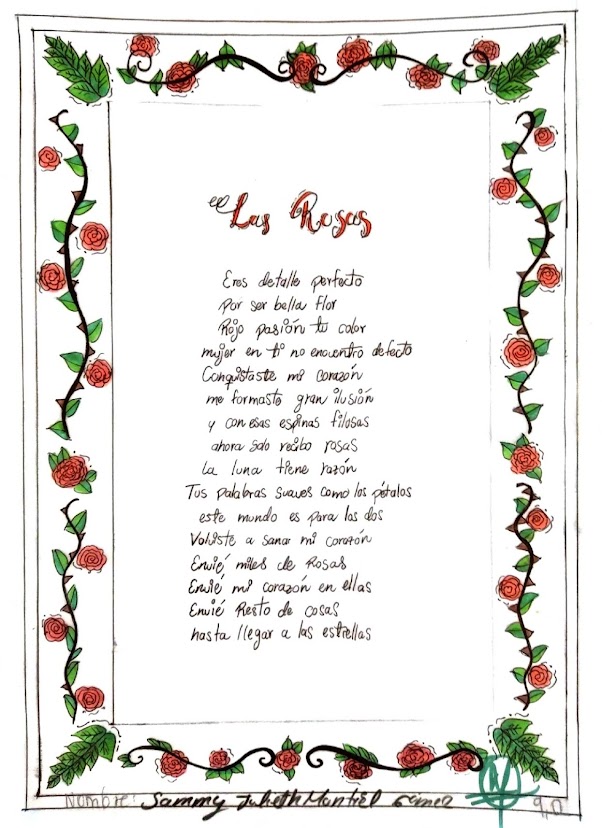 Las Rosas
Eres detalle perfecto
Por ser bella flor
Rojo pasión tu color
mujer en ti no encuentro defecto
Conquistaste mi corazón
me formaste gran ilusión
y con esas espinas filosas
ahora solo recibo rosas
La luna tiene razón
Tus palabras suaves como los pétalos
este mundo es para los dos
Volviste a sanar mi corazón
Envié miles de Rosas
Envié mi corazón en ellas
Envié Resto de cosas
hasta llegar a las estrellas
Nombre: Sammy Julieth Montiel Gómez